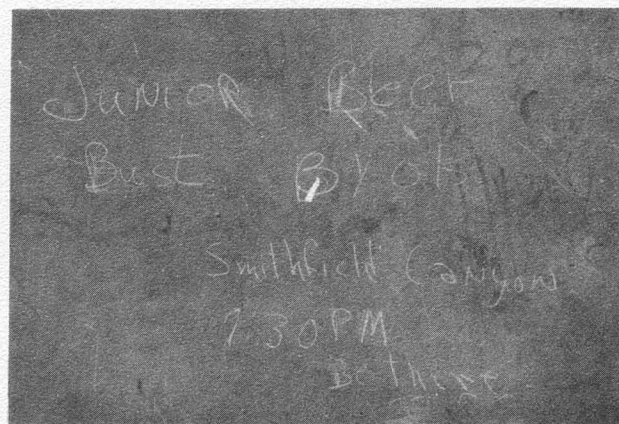 JUNIOR Beer
Bust BYOB
Smithfield Canyon
7:30 PM
Be there